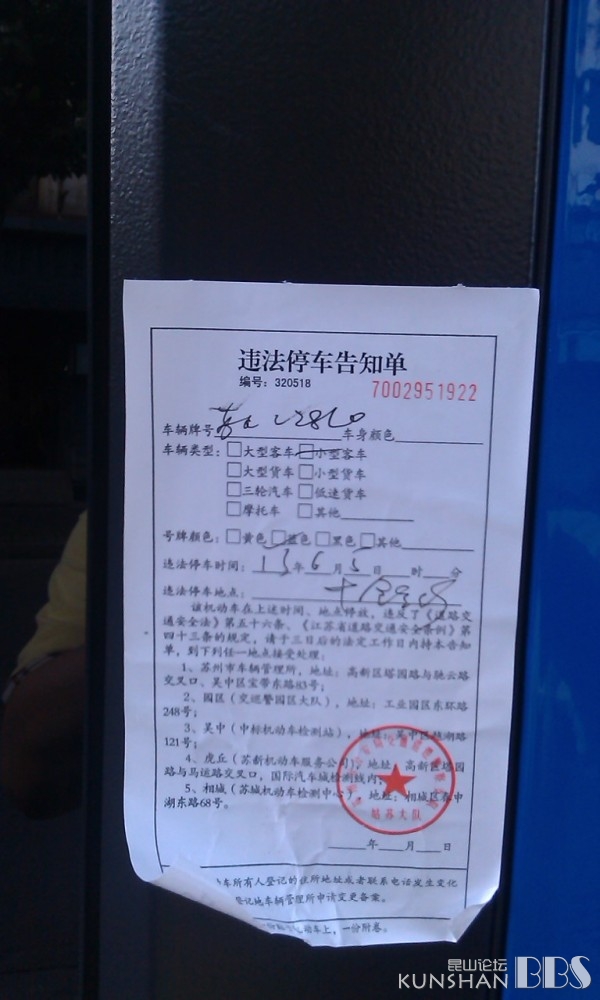 违法停车告知单
编号：320518
7002951922
车辆牌号 车身颜色
车辆类型：□大型客车 □小型客车
□大型货车 □小型货车
□三轮汽车 □低速货车
□摩托车 □其他
号牌颜色：□黄色 □蓝色 □黑色 □其他
违法停车时间：13年6月5日 时 分
违法停车地点：
该机动车在上述时间、地点停放，违反了《道路交
通安全法》第五十六条、《江苏省道路交通安全条例》第
四十三条的规定，请于三日后的法定工作日内持本告知
单，到下列任一地点接受处理：
1、苏州市车辆管理所，地址：高新区塔园路与驰云路
交叉口、吴中区宝带东路83号；
2、园区（交巡警园区大队），地址：工业园区东环路
248号；
3、吴中（中标机动车检测站），地址：吴中区 湖路
121号；
4、虎丘（苏新机动车服务公司），地址：高新区塔园
路与马运路交叉口，国际汽车城检测线内；
5、相城（苏城机动车检测中心），地址：相城区春申
湖东路68号。
姑苏大队
年 月 日
车所有人登记的住所地址或者联系电话发生变化
登记地车辆管理所申请变更备案。
动车上，一份附卷。
昆山论坛
KUNSHAN BBS